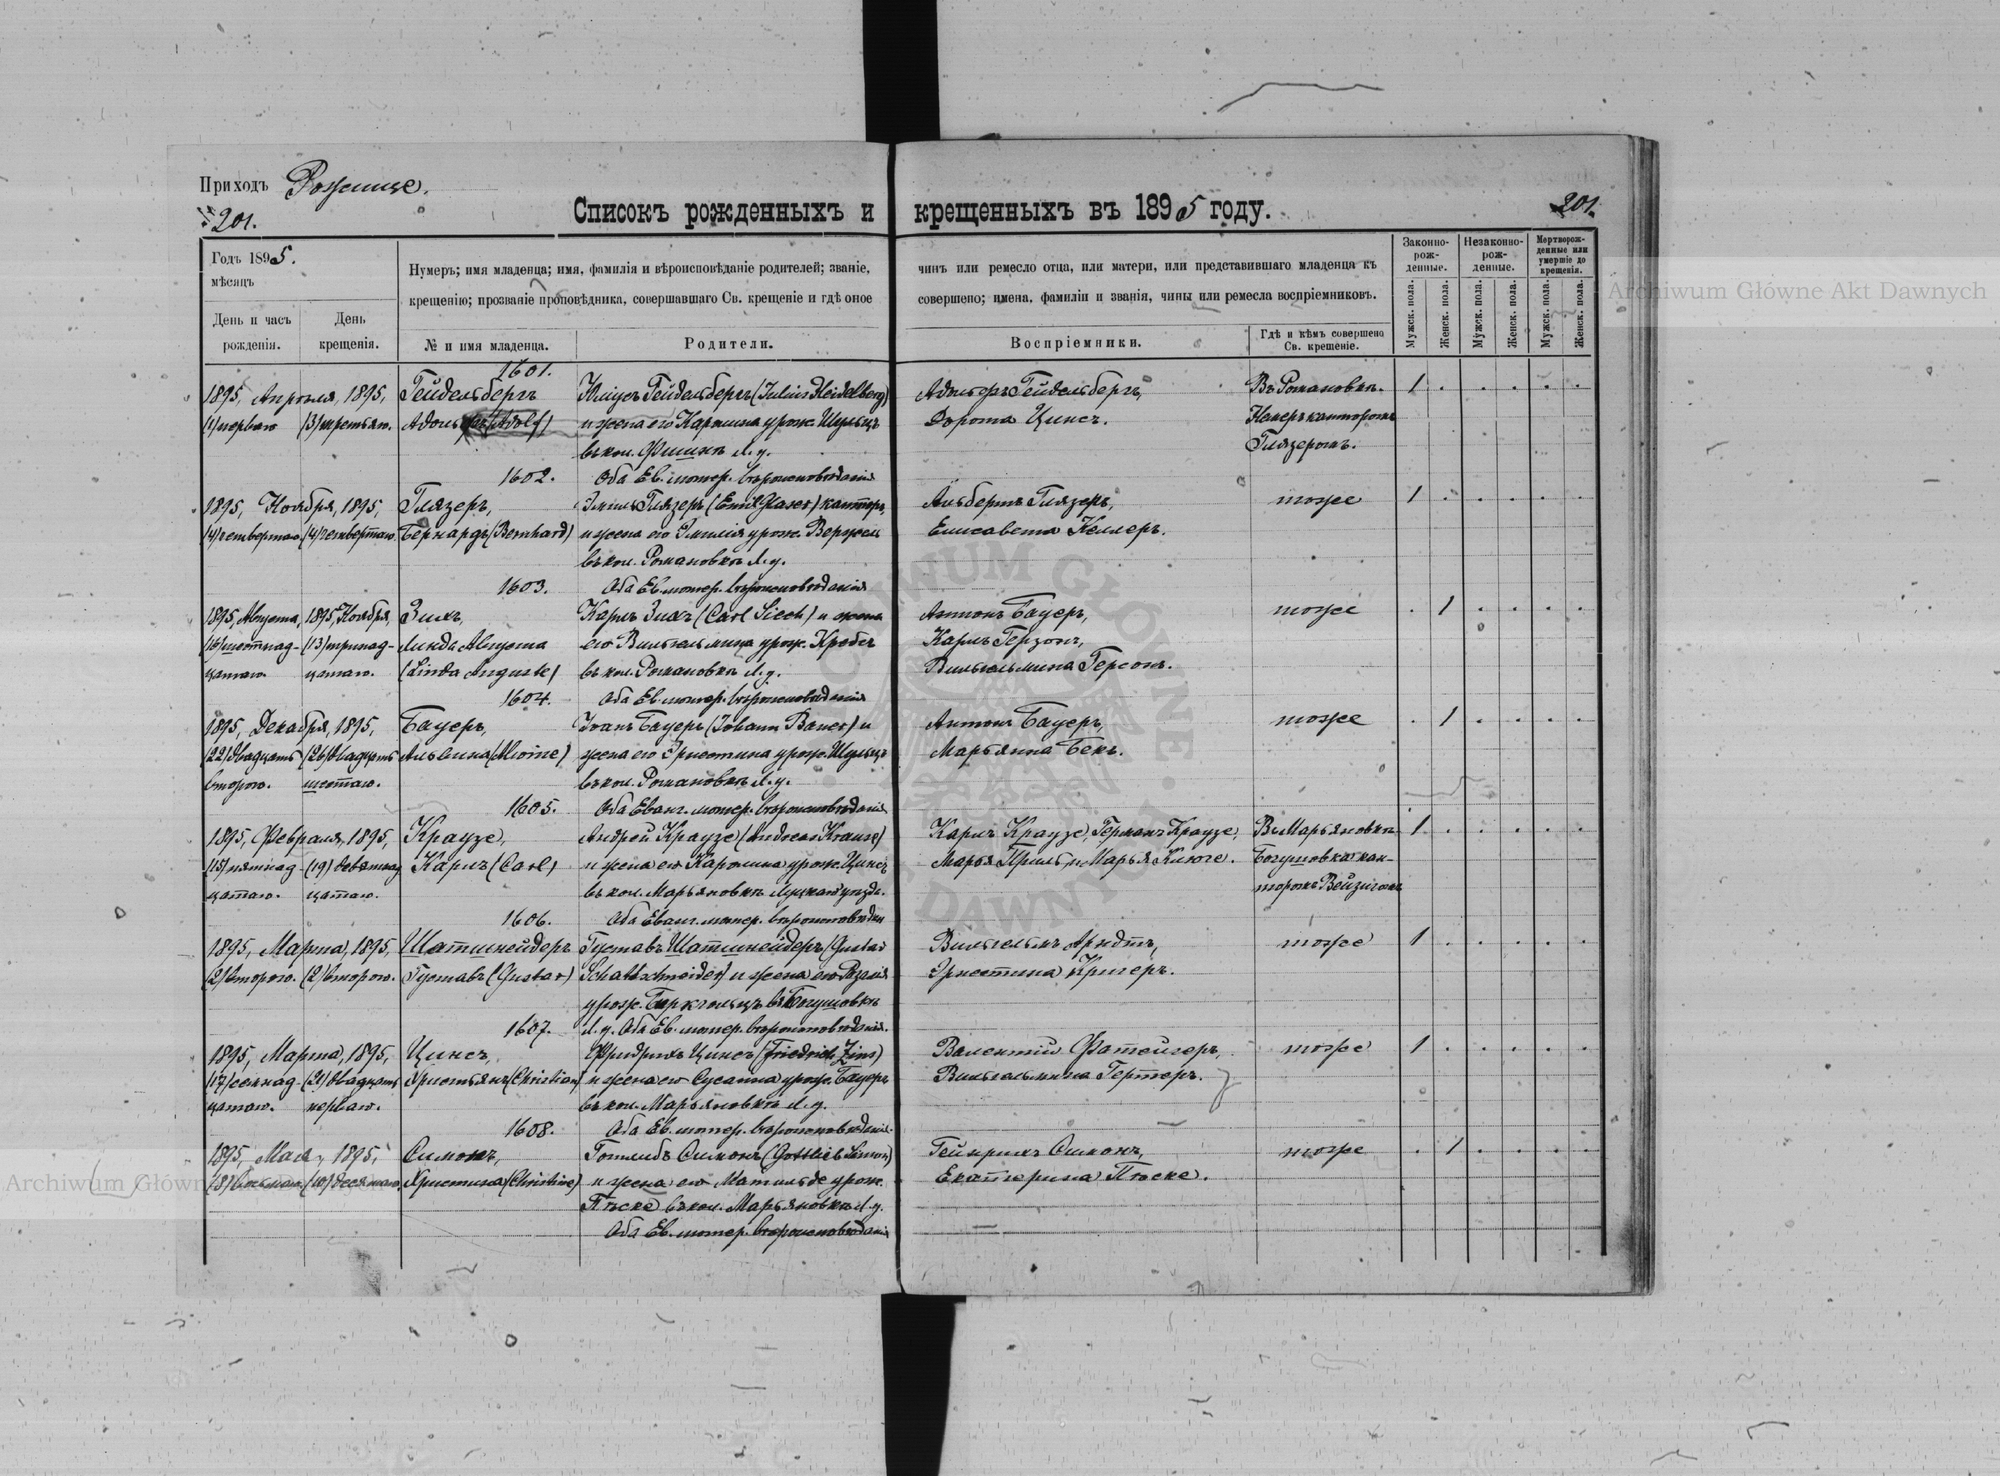 Приходъ Рожище.
№ 201.
Списокъ рожденныхъ и крещенныхъ въ 1895 году.
201.
Годъ 1895.
мѣсяцъ
День и часъ рожденія.
День крещенія.
Нумеръ; имя младенца; имя, фамилія и вѣроисповѣданіе родителей; званіе, чинъ или ремесло отца, или матери, или представившаго младенца къ
крещенію; прозваніе проповѣдника, совершавшаго Св. крещеніе и гдѣ оное совершено; имена, фамиліи и званія, чины или ремесла воспріемниковъ.
№ и имя младенца.
Родители.
Воспріемники.
Гдѣ и кѣмъ совершено Св. крещеніе.
Законно-рож-денные.
Незаконно-рож-денные.
Мертворож-денные или умершіе до крещенія.
Мужск. пола.
Женск. пола.
Мужск. пола.
Женск. пола.
Мужск. пола.
Женск. пола.
1601.
1895, Апрѣля, 1895, Гейдельбергъ Юліусъ Гейдельбергъ (Julius Heidelberg) Адольфъ Гейдельбергъ, Въ Романовкѣ- 1 . . . . .
(1) перваго (3) третьяго. Адольфъ (Adolf) и жена его Каролина урож. Шульцъ Дорота Цинсъ. канторомъ
въ кол. Л. у. Глязеромъ.
1602. Оба Ев. лютер. вѣроисповѣданія
1895, Ноября, 1895, Глязеръ, Эмиль Глязеръ (Emil Glaser) канторъ, Альбертъ Глязеръ, тоже 1 . . . . .
(4) четвертаго (4) четвертаго Бернардъ (Bernhard) и жена его Эмилія урож. Елисавета Келлеръ.
въ кол. Романовкѣ Л. у.
1603. Оба Ев. лютер. вѣроисповѣданія
1895, Августа, 1895, Ноября, Зикъ, Карлъ Зикъ (Carl Sieck) и жена Антонъ Бауеръ, тоже . 1 . . . .
(16) шестнад- (13) тринад- Линда Августа его Вильгельмина урож. Карлъ Герзонъ,
цатаго. цатаго. (Linda Auguste) въ кол. Романовкѣ Л. у. Вильгельмина Герсонъ.
1604. Оба Ев. лютер. вѣроисповѣданія
1895, Декабря, 1895, Бауеръ, Іоанъ Бауеръ (Johann Bauer) и Антонъ Бауеръ, тоже . 1 . . . .
(22) двадцать (26) двадцать Альвина (Alwine) жена его Эрнестина урож. Шульцъ Марьянна Бекъ.
второго. шестаго. въ кол. Романовкѣ Л. у.
1605. Оба Еванг. лютер. вѣроисповѣданія
1895, Февраля, 1895, Краузе, Андрей Краузе (Andreas Krause) Карлъ Краузе, Германъ Краузе, Въ Марьяновкѣ 1 . . . . .
(15) пятнад- (19) девятнад Карлъ (Carl) и жена его Каролина урож. Цинсъ Марья Приль, Марья Клюге. Богушовкѣ кан-
цатаго. цатаго. въ кол. Марьяновкѣ Луцкаго уѣзда. торомъ
1606. Оба Еванг. лютер. вѣроисповѣдан
1895, Марта, 1895, Шатшнейдеръ Густавъ Шатшнейдеръ (Gustav Вильгельмъ Арндтъ, тоже 1 . . . . .
(2) второго. (2) второго. Густавъ (Gustav) Schattschneider) и жена его Розалія Эрнестина Кригеръ.
урож. Беркгольцъ въ Богушовкѣ
1607. Л. у. Оба Ев. лютер. вѣроисповѣданія.
1895, Марта, 1895, Цинсъ, Фридрихъ Цинсъ (Friedrich Zins) Валентій тоже 1 . . . . .
(17) семнад- (21) двадцать Христьянъ (Christian) и жена его Сусанна урож. Бауеръ Вильгельмина Гертеръ.
цатаго. перваго. въ кол. Марьяновкѣ Л. у.
1608. Оба Ев. лютер. вѣроисповѣданія.
1895, Мая, 1895, Симонъ, Готлибъ Симонъ (Gottlieb Simon) Гейнрихъ Симонъ, тоже . 1 . . . .
(8) восьмаго (10) десятаго. Христина (Christine) и жена его Матильде урож. Екатерина Пѣске.
Пѣске въ кол. Марьяновкѣ Л. у.
Оба Ев. лютер. вѣроисповѣданія
Archiwum Główne Akt Dawnych
Archiwum Główn